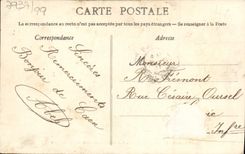 CARTE POSTALE
La correspondance au recto n'est pas acceptée par tous les pays étrangers — (Se renseigner à la Poste)
Correspondance
Adresse
Sincères
Remerciements
Bonjour de Caen
Monsieur
R. Frémont
Rue Césaire Oursel
Infre